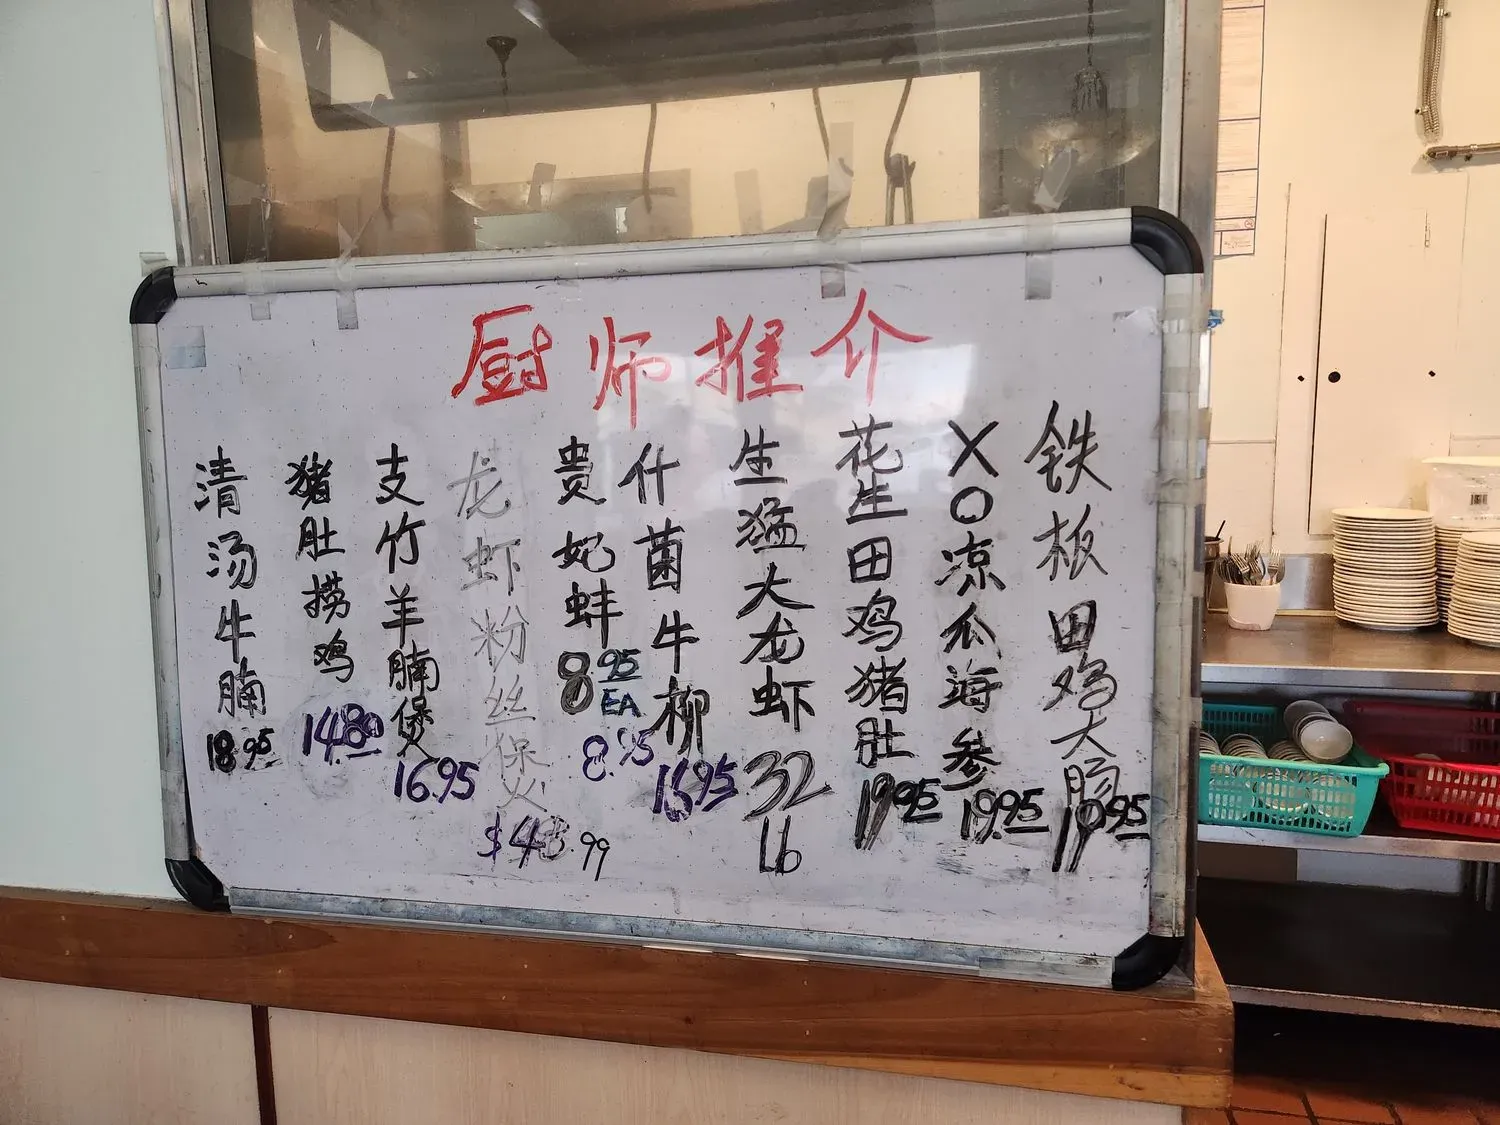 厨师推介
清汤牛腩 18.95
猪肚捞鸡 14.80
支竹羊腩煲 16.95
龙虾粉丝煲 $43.99
贵妃蚌 8.95 EA 8.95
什菌牛柳 16.95
生猛大龙虾 32 16
花生田鸡猪肚 19.95
XO凉瓜海参 19.95
铁板田鸡大肠 19.95